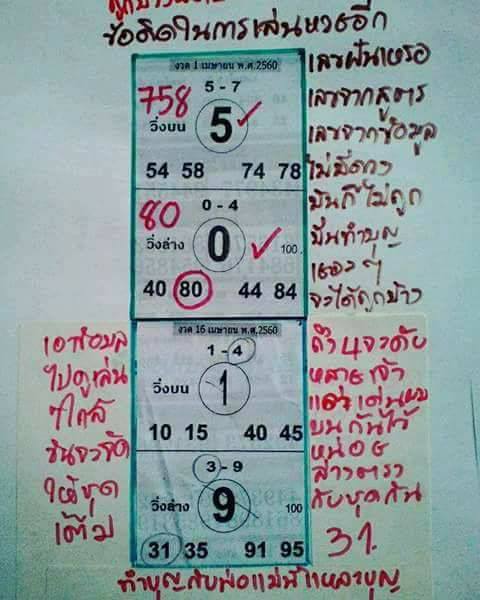 ข้อคิดในการเล่นหวยอีก
งวด 1 เมษายน พ.ศ.2560
เลขฝันเหรอ
758
5 - 7
เลขจากสูตร
วิ่งบน
5
เลขจากข้อมูล
54 58 74 78
ไม่มีดวง
80
0 - 4
มันก็ไม่ถูก
วิ่งล่าง
0
100
หมั่นทำบุญ
เยอะๆ
40 80 44 84
จะได้ถูกบ้าง
งวด 16 เมษายน พ.ศ.2560
1 - 4
วิ่งบน
1
10 15 40 45
3 - 9
วิ่งล่าง
9
100
31 35 91 95
เอาข้อมูล
ไปดูเล่น
ให้ชุด
เต็ม
ถ้า 4 จะดับ
หลายเจ้า
แต่เด่น
บน กันไว้
หน่อย
ล่าง
กับชุดกัน
31.
ทำบุญกับพ่อแม่